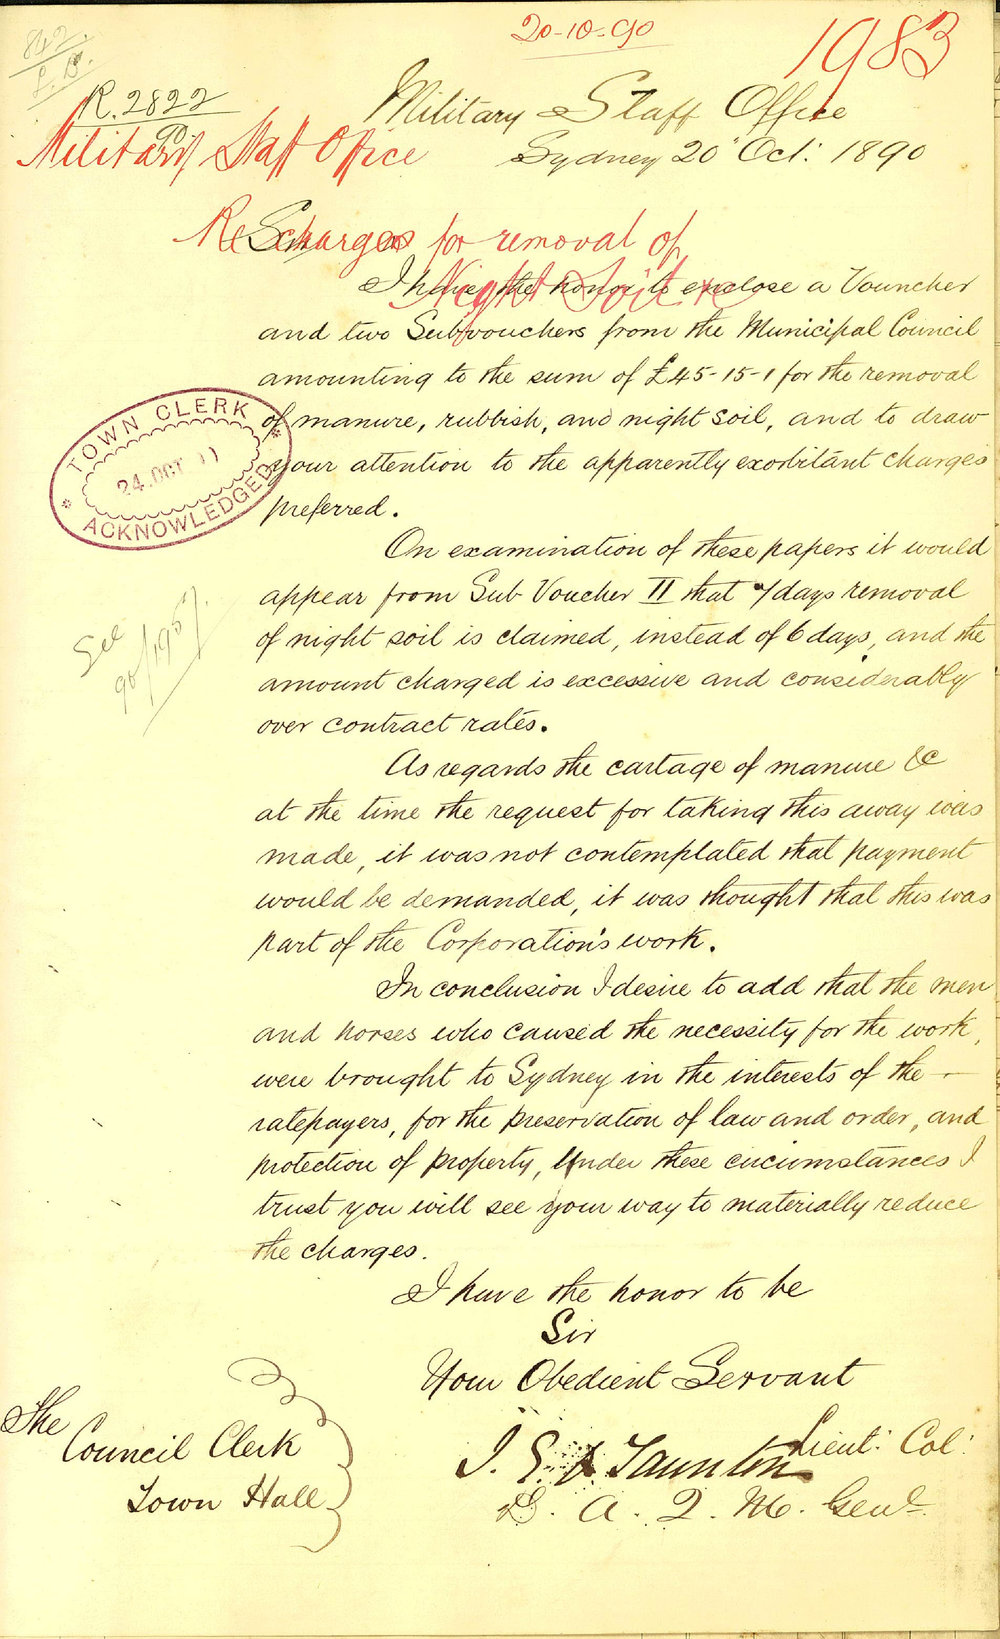 20-10-90
1983
842.
R. 2822
Military Staff Office
Military Staff Office
Sydney 20 Oct: 1890
Re charges for removal of
Night Soil &c
Sir
I have the honor to enclose a Vouncher
and two Subvouchers from the Municipal Council
amounting to the sum of £45-15-1 for the removal
of manure, rubbish, and night soil, and to draw
your attention to the apparently exorbitant charges
preferred.
TOWN CLERK
24. OCT
ACKNOWLEDGED
On examination of these papers it would
appear from Sub Voucher II that 7 days removal
of night soil is claimed, instead of 6 days, and the
amount charged is excessive and considerably
over contract rates.
See
90/1957.
As regards the cartage of manure &c
at the time the request for taking this away was
made, it was not contemplated that payment
would be demanded, it was thought that this was
part of the Corporation's work.
In conclusion I desire to add that the men
and horses who caused the necessity for the work,
were brought to Sydney in the interests of the
ratepayers, for the preservation of law and order, and
protection of property, Under these circumstances I
trust you will see your way to materially reduce
the charges.
I have the honor to be
Sir
Your Obedient Servant
Taunton Lieut: Col:
D. A. Q. M. Genl
The
Council Clerk
Town Hall